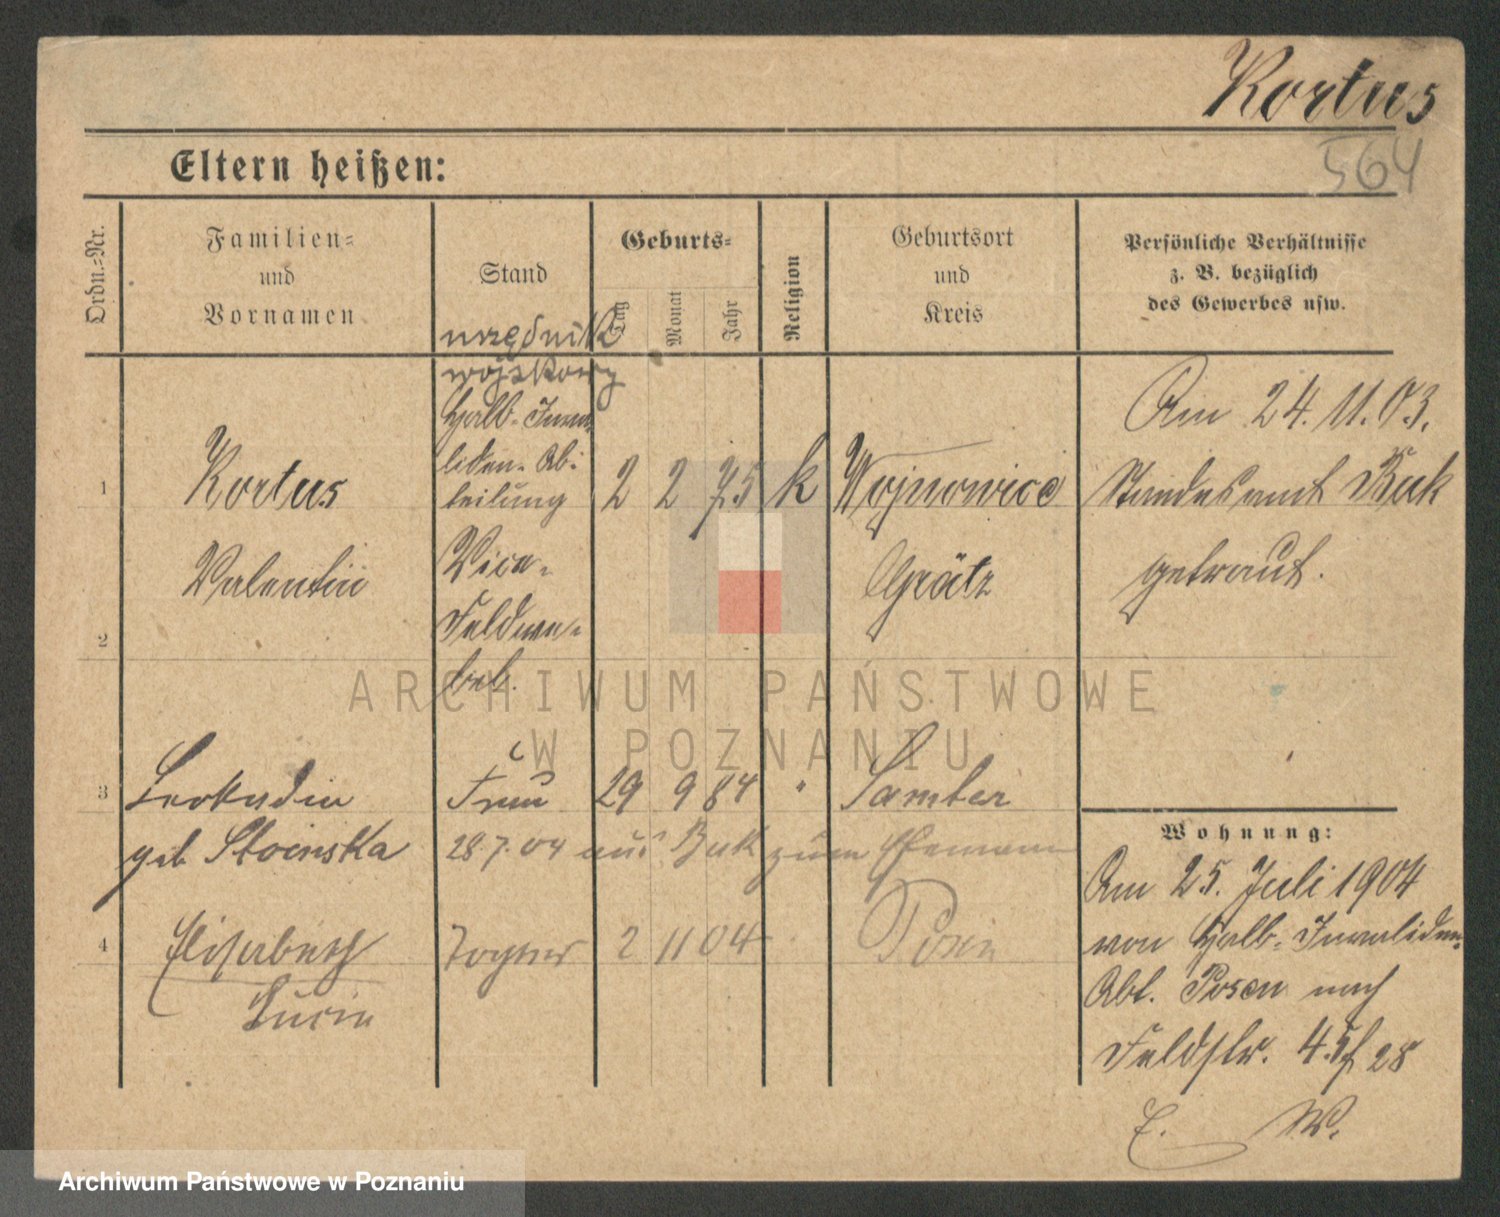 Kortus
564
Eltern heißen:
Ordn.-Nr.
Familien=
und
Vornamen
Stand
Geburts=
Tag
Monat
Jahr
Religion
Geburtsort
und
Kreis
Persönliche Verhältnisse
z. B. bezüglich
des Gewerbes usw.
urzędnik
wojskowy
1
Kortus
Valentin
Halb-Inva-
liden-Ab-
teilung
Vice-
Feldwe-
bel.
2 2 75 k
Wojnowice
Grätz
Am 24.11.03.
Standesamt Buk
getraut.
2
3
Leokadia
geb Słoinska
Frau
29 9 84 "
Samter
28.7.04 aus Buk zum Ehemann
4
Elisabeth
Lucia
Tochter
2 11 04
Posen
Wohnung:
Am 25. Juli 1904
von Halb-Invaliden-
Abt. Posen nach
Feldstr. 4.
28
E. W.
ARCHIWUM PAŃSTWOWE
W POZNANIU
Archiwum Państwowe w Poznaniu